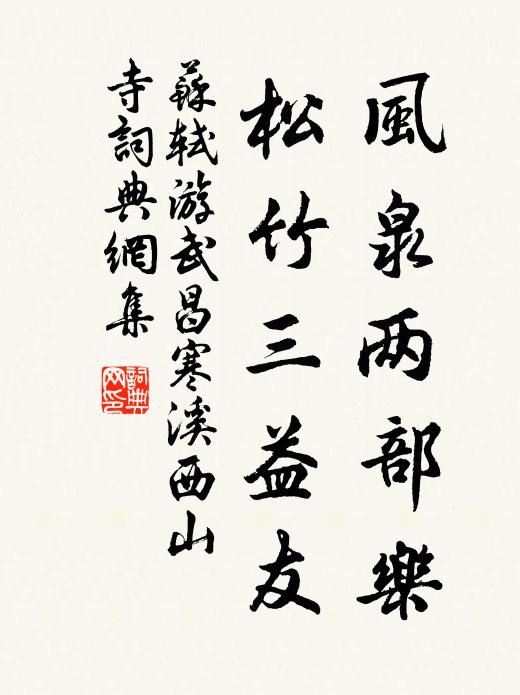 風泉两部樂
松竹三益友
蘇軾游武昌寒溪西山
寺詞典網集
詞典网印